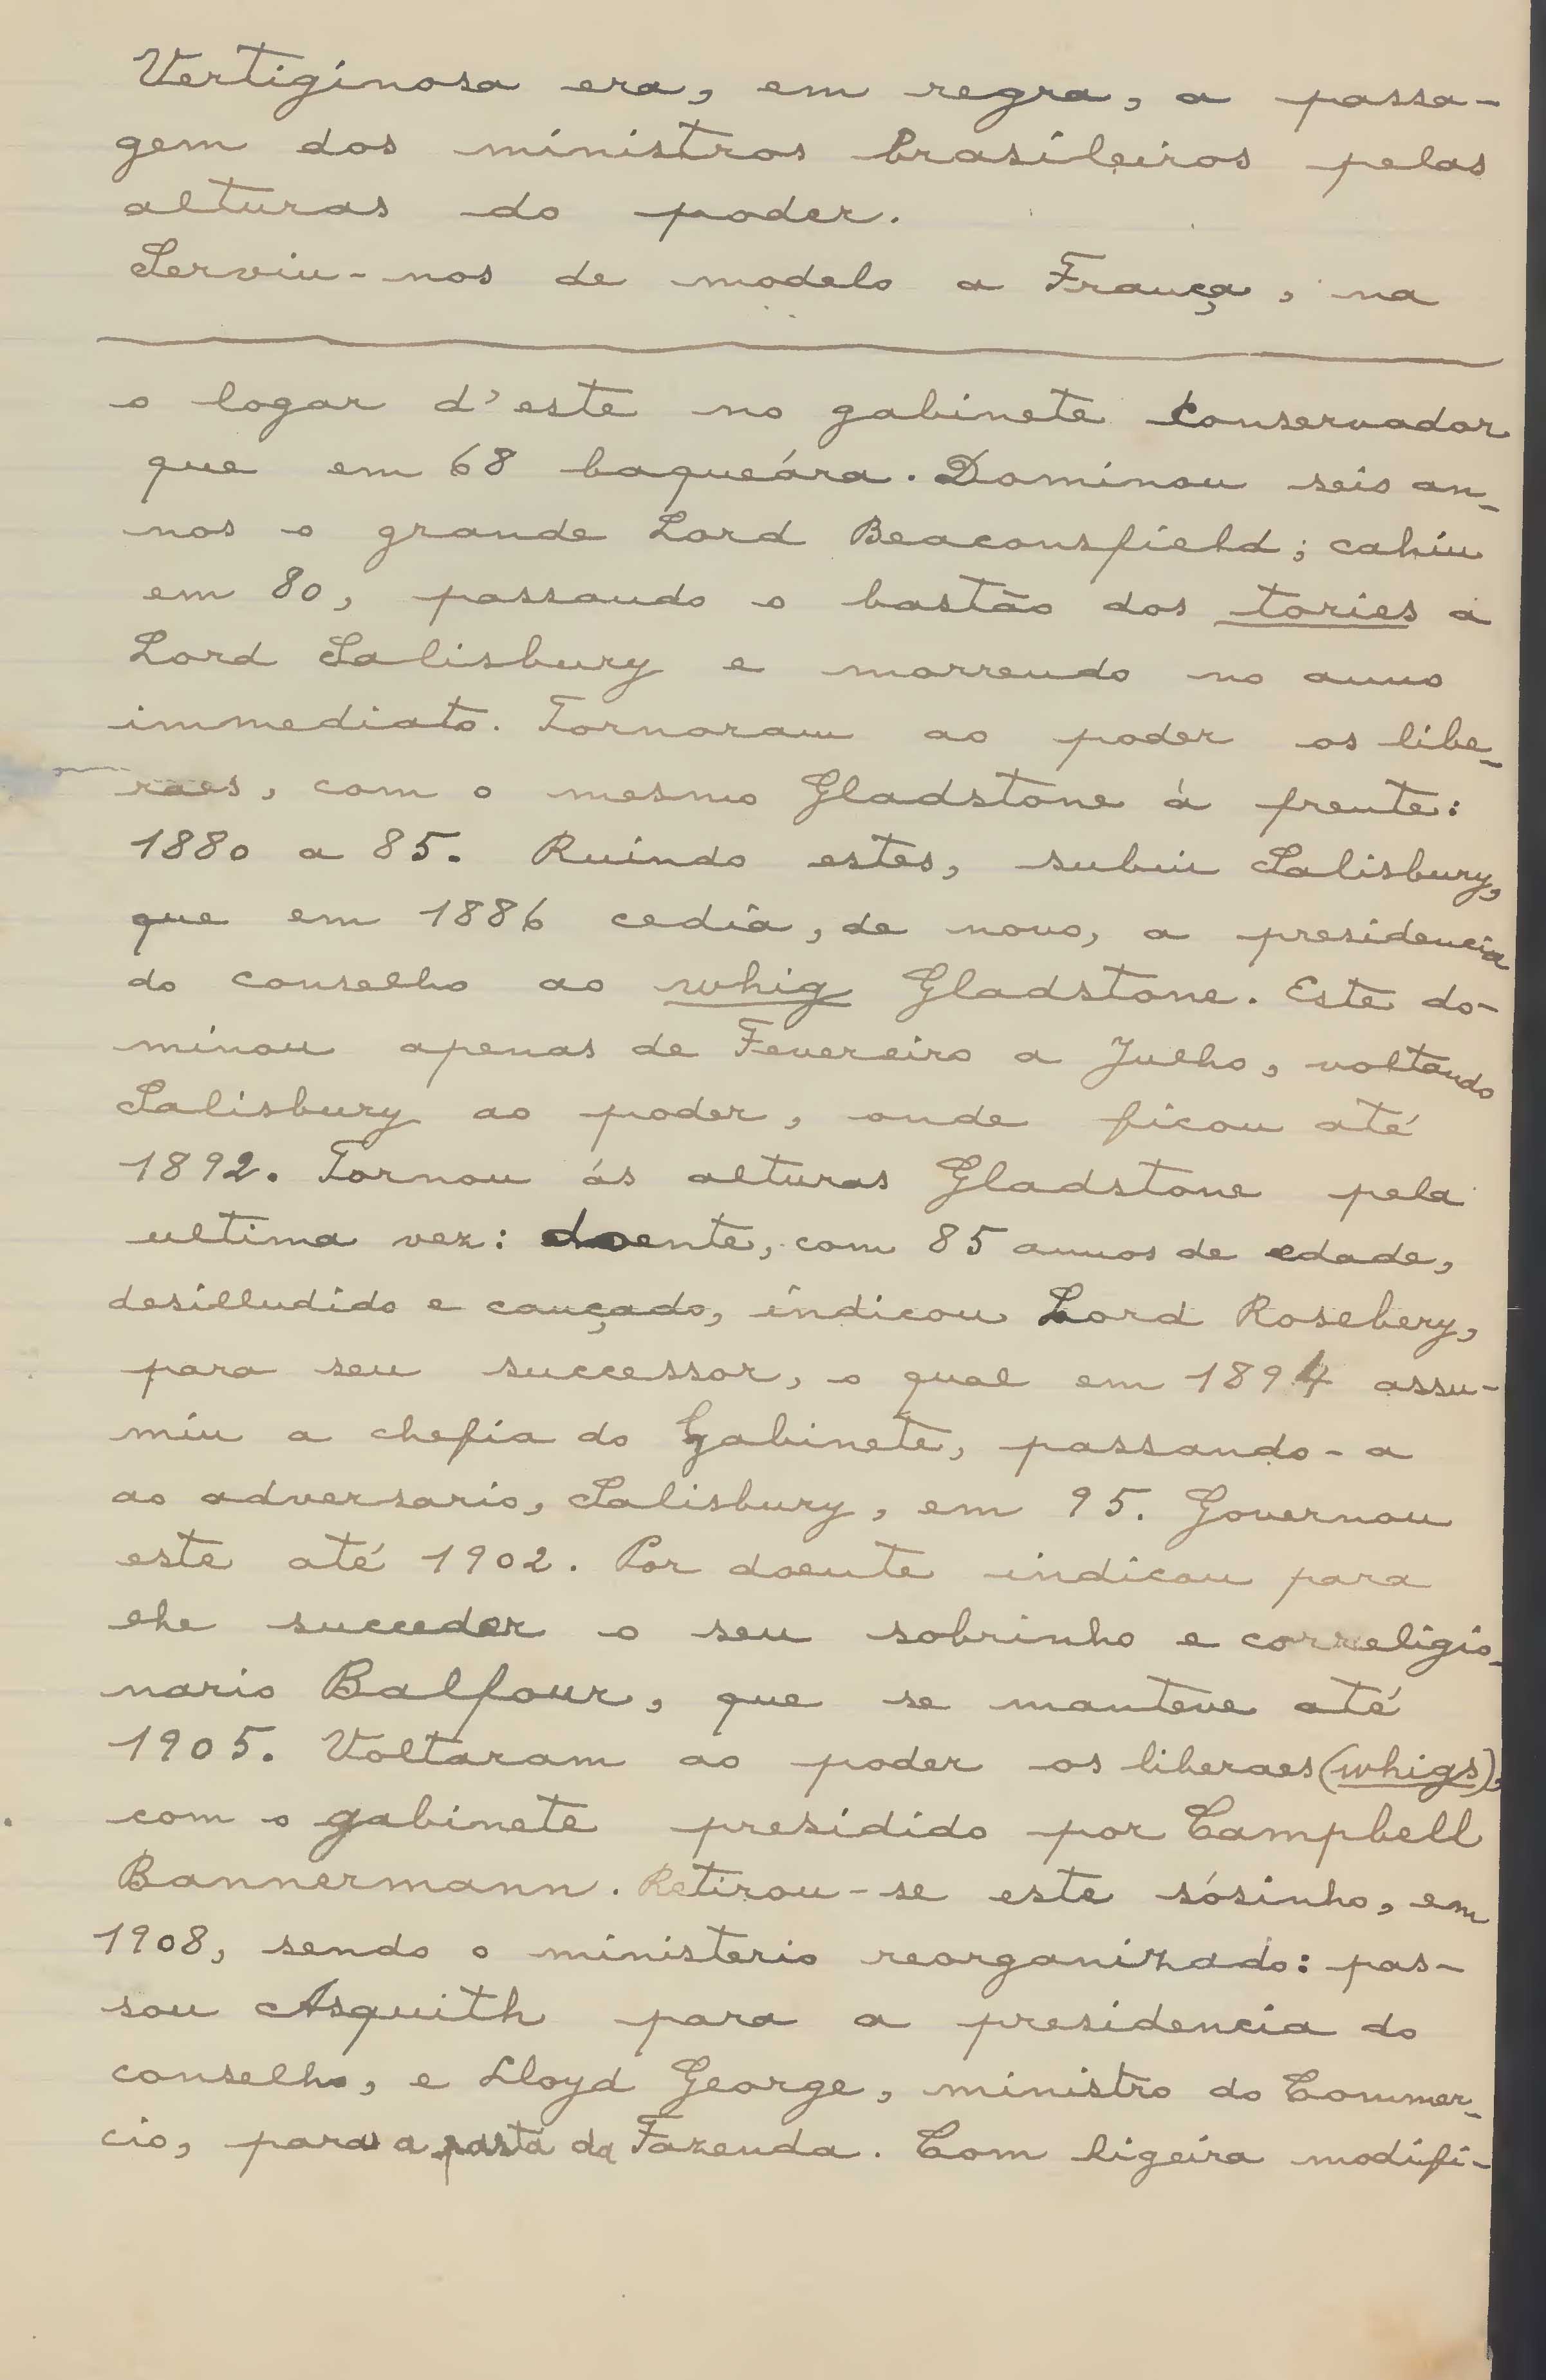 Vertiginosa era, em regra, a passa-
gem dos ministros brasileiros pelas
alturas do poder.
Serviu-nos de modelo a França, na
o logar d'este no gabinete conservador
que em 68 baqueára. Dominou seis an-
nos o grande Lord Beaconsfield; cahiu
em 80, passando o bastão dos tories a
Lord Salisbury e morrendo no anno
immediato. Tornaram ao poder os libe-
raes, com o mesmo Gladstone á frente:
1880 a 85. Ruindo estes, subiu Salisbury,
que em 1886 cedia, de novo, a presidencia
do conselho ao whig Gladstone. Este do-
minou apenas de Fevereiro a Julho, voltando
Salisbury ao poder, onde ficou até
1892. Tornou ás alturas Gladstone pela
ultima vez: doente, com 85 annos de edade,
desilludido e cançado, indicou Lord Rosebery,
para seu successor, o qual em 1894 assu-
miu a chefia do Gabinete, passando-a
ao adversario, Salisbury, em 95. Governou
este até 1902. Por doente indicou para
lhe succeder o seu sobrinho e correligio-
nario Balfour, que se manteve até
1905. Voltaram ao poder os liberaes (whigs),
com o gabinete presidido por Campbell
Bannermann. Retirou-se este sósinho, em
1908, sendo o ministerio reorganizado: pas-
sou Asquith para a presidencia do
conselho, e Lloyd George, ministro do Commer-
cio, para a pasta da Fazenda. Com ligeira modifi-